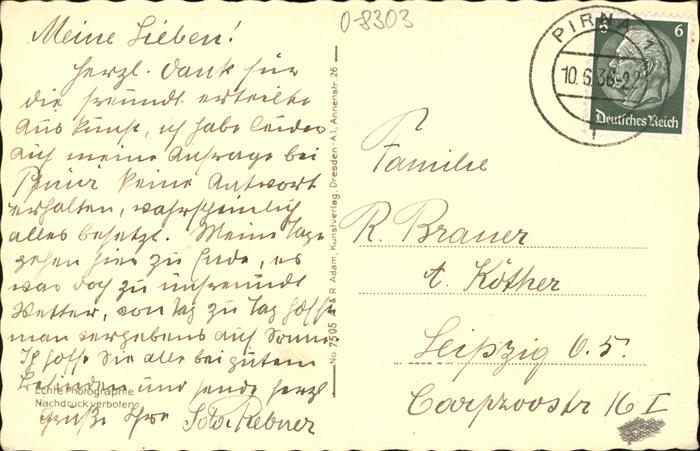 0-8303
Meine Lieben!
Herzl. Dank für
die freundl. erteilte
Auskunft, ich habe leider
auf meine Anfrage bei
keine Antwort
erhalten, wahrscheinlich
alles besetzt. Meine Tage
gehen hier zu Ende, es
war doch zu unfreundl
Wetter, von Tag zu Tag hofft
man vergebens auf Sonne
Ich hoffe Sie alle bei gutem
Befinden und sende herzl
Grüße Ihre Rebner
Echte Photographie
Nachdruck verboten
No. 7505 A & R. Adam, Kunstverlag, Dresden-A.1, Annenstr. 26
PIRNA 1
10.6.36
6 6
Deutsches Reich
Familie
R. Brauer
b. Köther
Leipzig O.5.
16 I